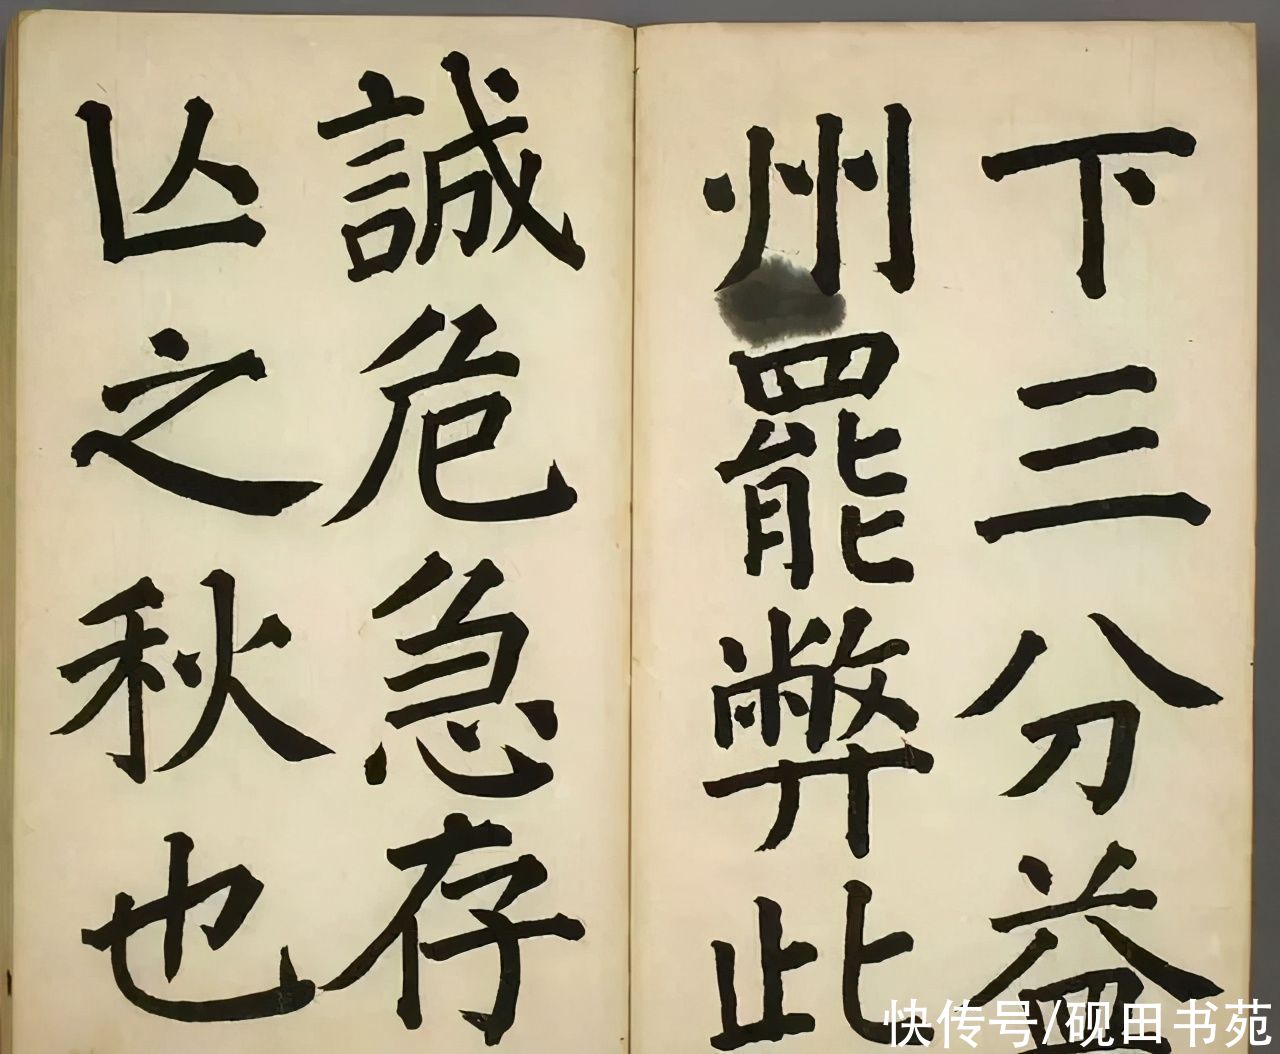 下三分益
州罷弊此
誠危急存
亾之秋也
快传号/砚田书苑